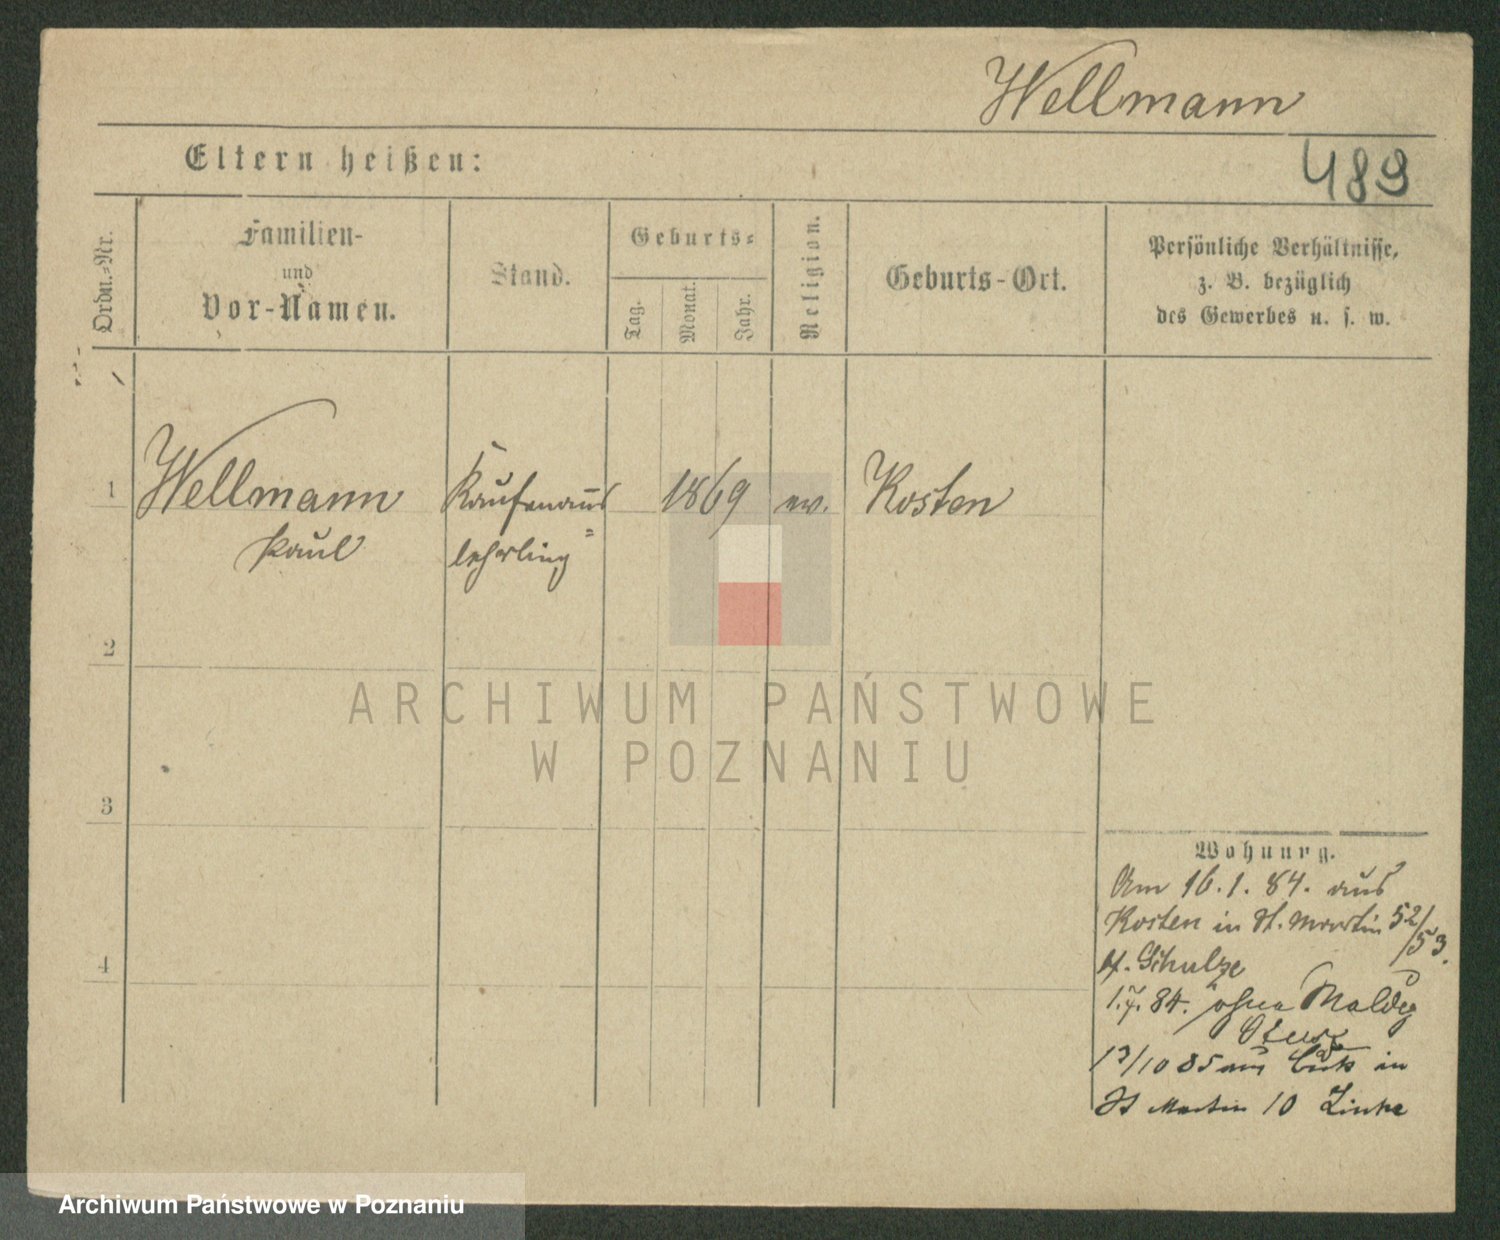 Wellmann
Eltern heißen:
489
Ordn.=Nr.
Familien-
und
Vor-Namen.
Stand.
Geburts=
Tag.
Monat.
Jahr.
Religion.
Geburts-Ort.
Persönliche Verhältnisse,
z. B. bezüglich
des Gewerbes u. s. w.
1
Wellmann
Paul
Kaufmanns
lehrling
1869
ev.
Kosten
2
ARCHIWUM PAŃSTWOWE
W POZNANIU
3
4
Wohnung.
Am 16.1.84. aus
Kosten in St. Martin 52/53.
bf. Schulze
84. ohne Meldg
13/10 85 aus in
St Martin 10 Linke
Archiwum Państwowe w Poznaniu